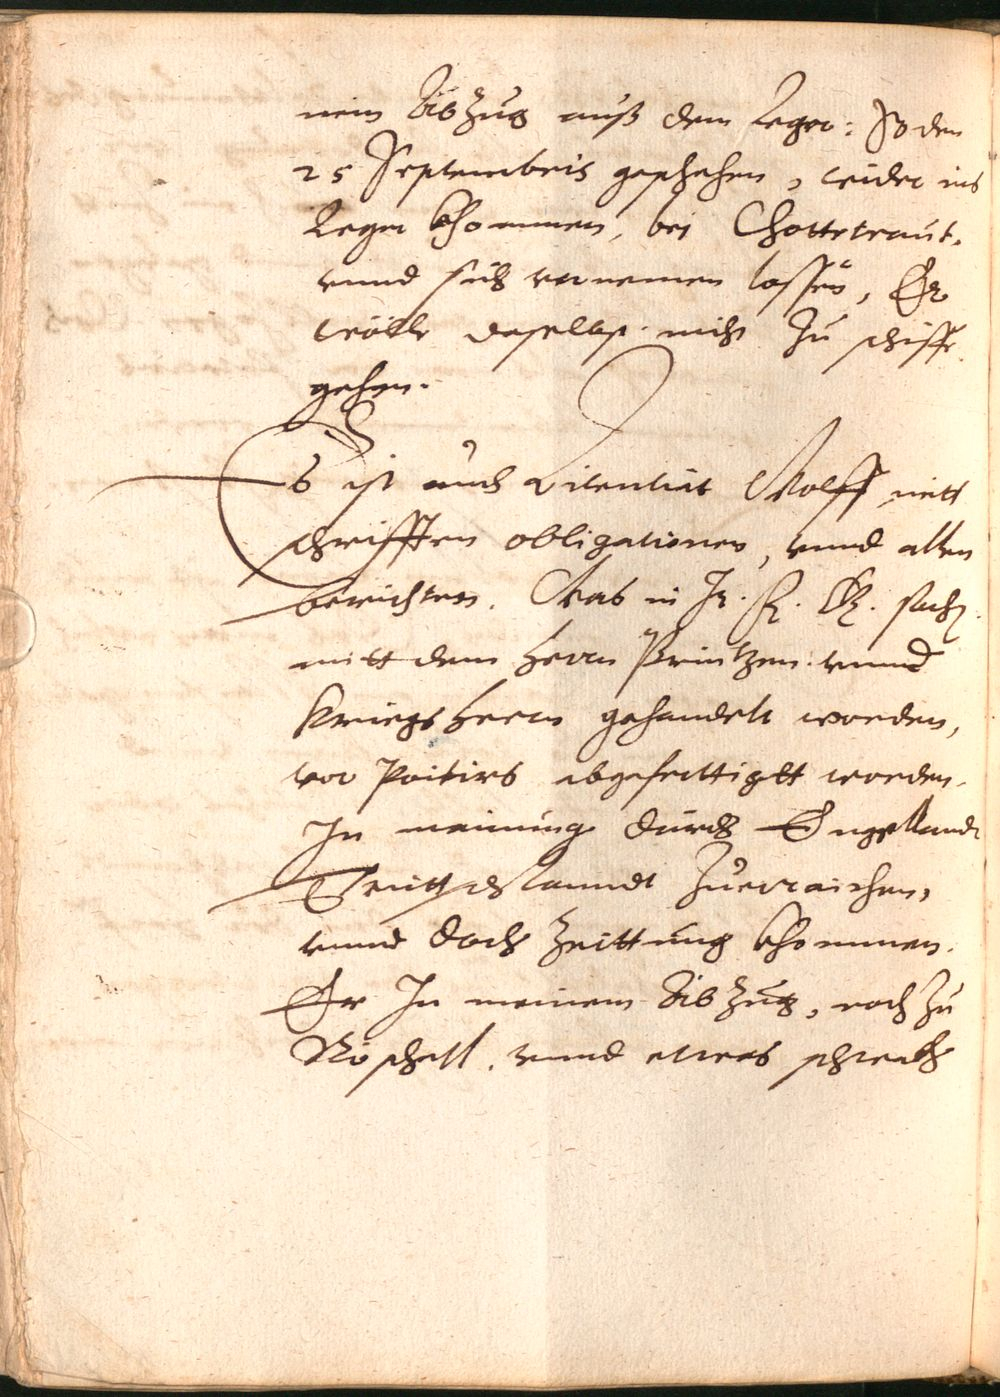 nem Abzug auß dem Leger: So den
25 Septembris geschehen, wider ins
Leger khommen, bei Chattelraut,
vnnd sich vernemen lassen, Er
wölle daselbst nicht zu schiffe
gehen.
Es ist auch Licentiat Wolff mitt
schrifften obligationen, vnnd allen
berichten. Was in Jr. F. G. sach
mitt dem Herrn Printzen vnnd
Kriegs Herrn gehandelt worden,
vor Poitirs abgeferttigtt worden.
In meinung durch Engellandt
Teutschlanndt zuerraichen,
vnnd doch Zeittung khommen.
Er In meinem Abzug, noch zu
Roschell. vnnd etwas schwach